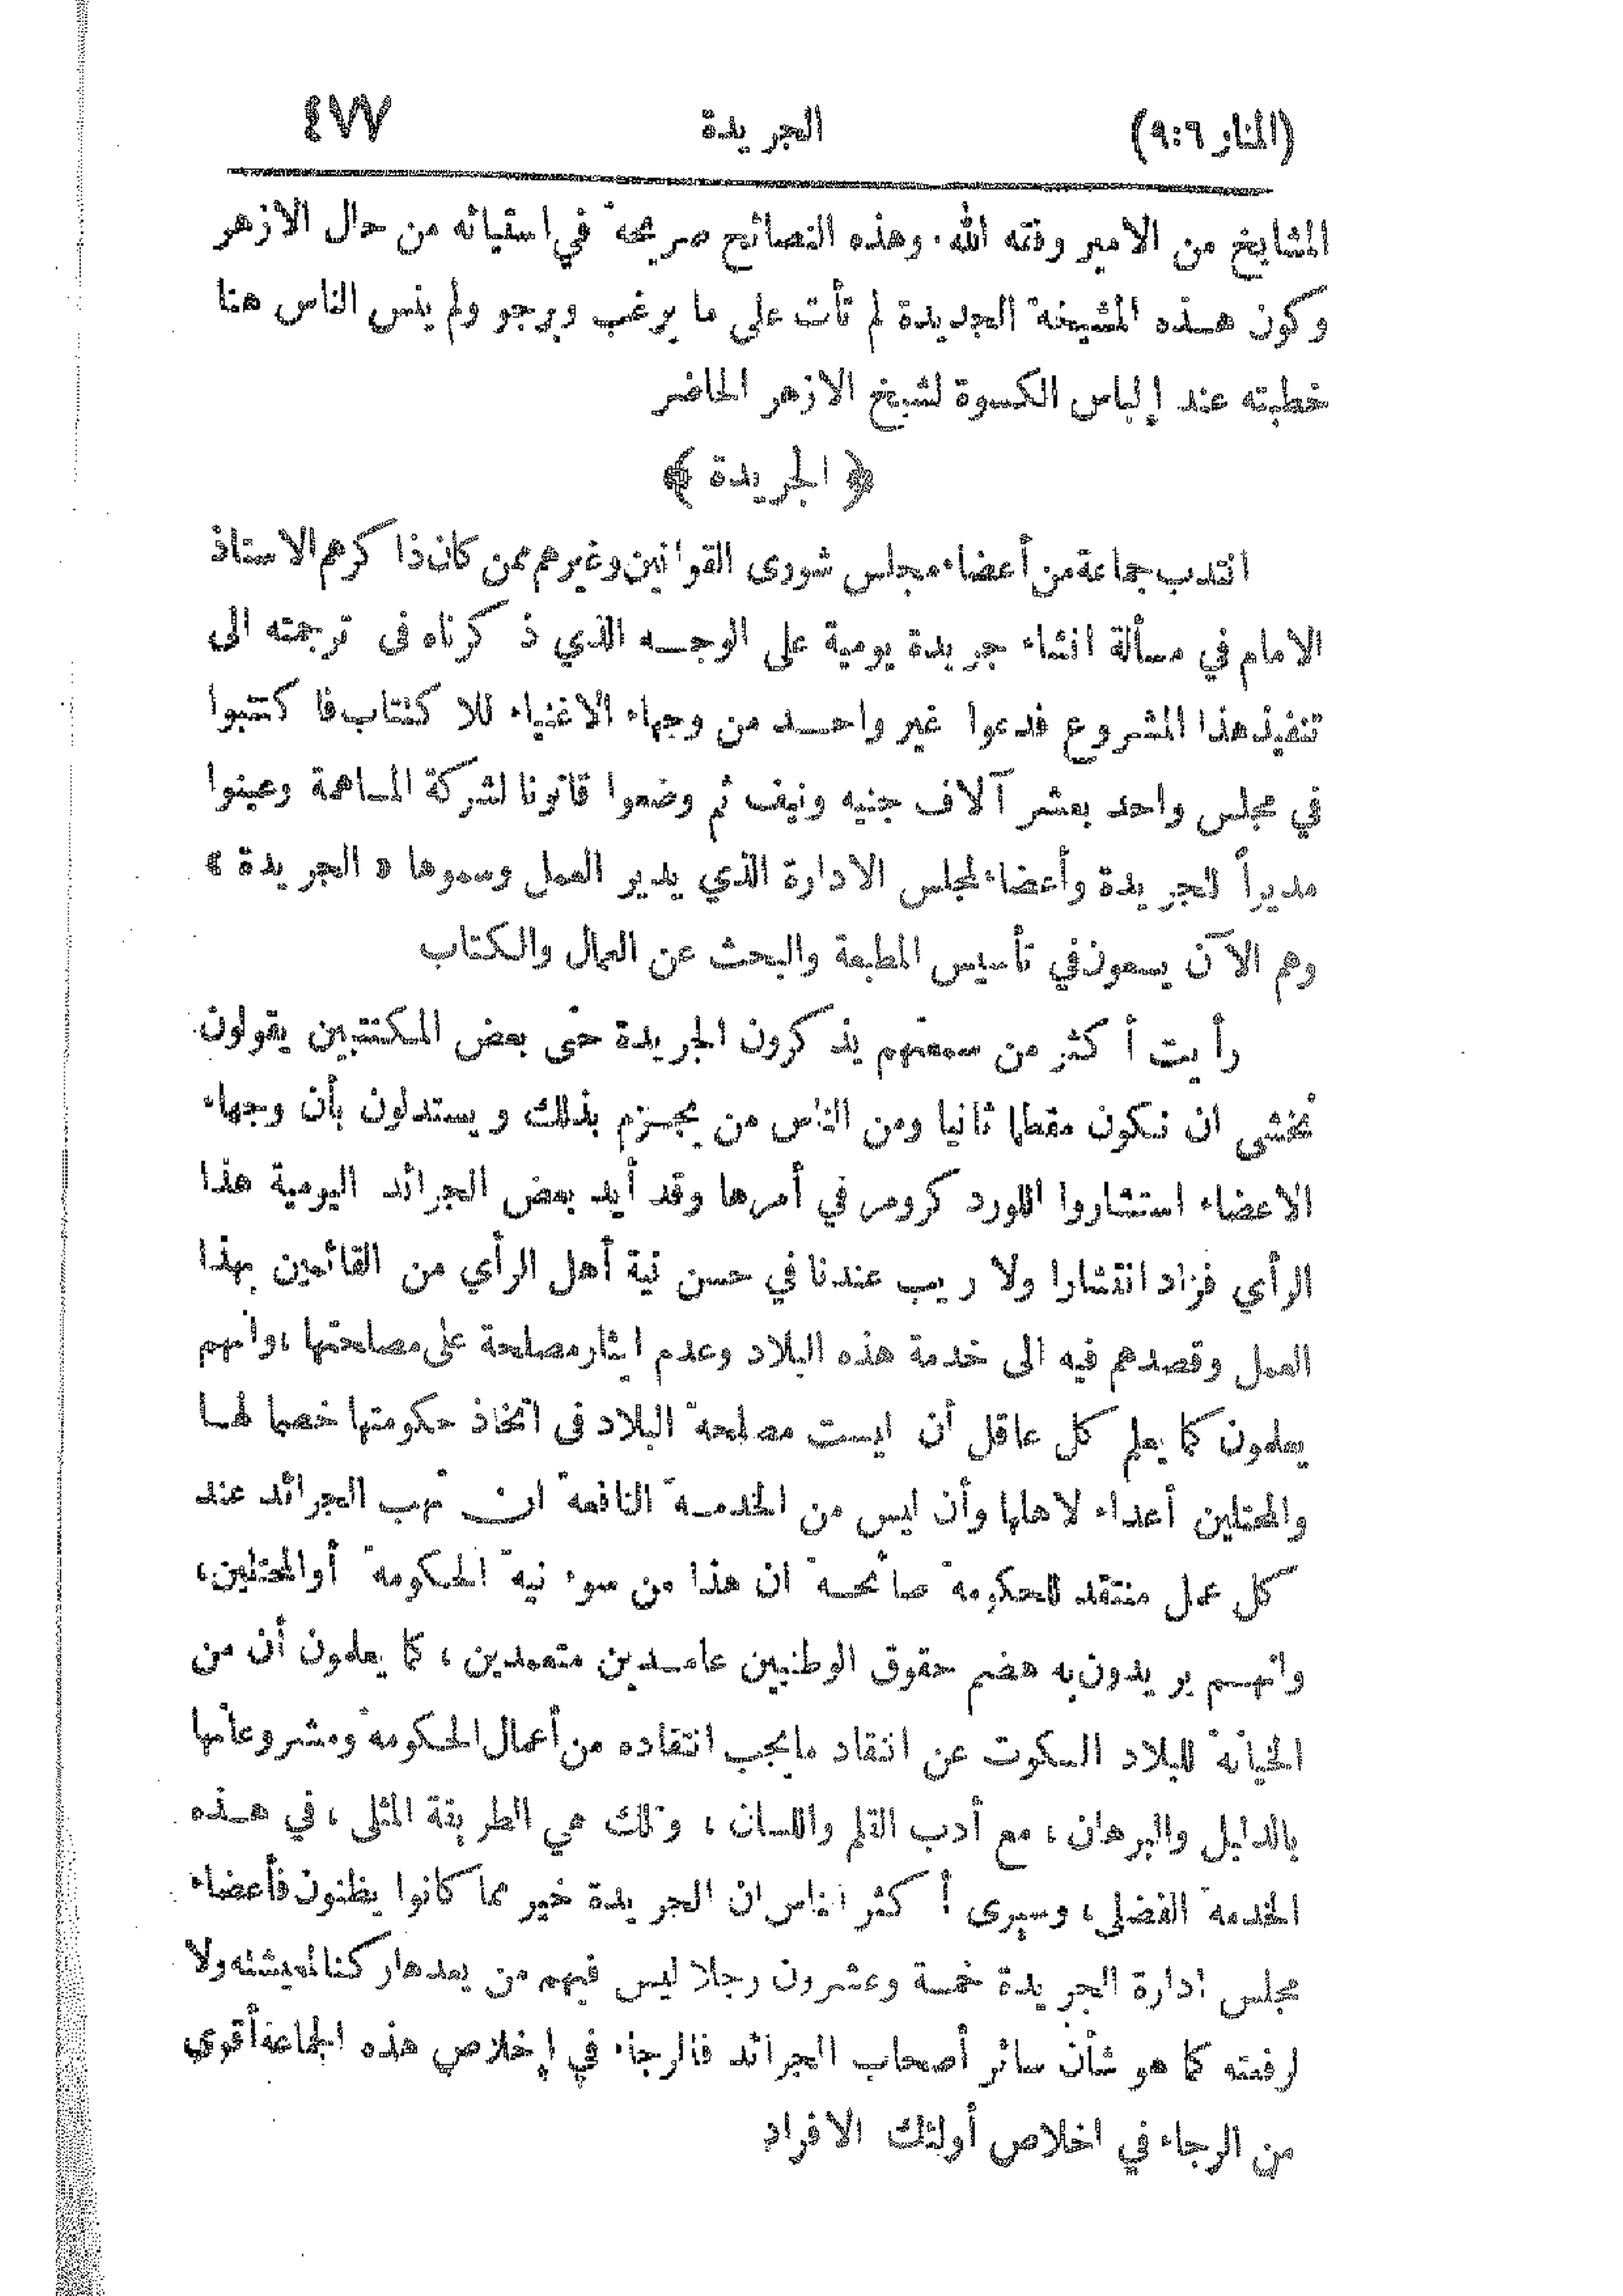 (المنار ٩:٦) الجريدة ٤٧٧
المشايخ من الامير وفقه الله. وهذه النصائح صريحة في استيائه من حال الازهر
وكون هذه المشيخة الجديدة لم تأت على ما يرغب ويرجو ولم ينس الناس هنا
خطبته عند إلباس الكسوة لشيخ الازهر الحاضر
﴿ الجريدة ﴾
انتدب جماعة من أعضاء مجلس شورى القوانين وغيرهم ممن كان ذا كرهم الاستاذ
الامام في مسألة انشاء جريدة يومية على الوجه الذي ذكرناه في ترجمته الى
تنفيذ هذا المشروع فدعوا غير واحد من وجهاء الاغنياء للاكتتاب فاكتتبوا
في مجلس واحد بعشر آلاف جنيه ونيف ثم وضعوا قانونا لشركة المساهمة وعينوا
مديراً للجريدة وأعضاء لمجلس الادارة الذي يدير العمل وسموها « الجريدة »
وهم الآن يسعون في تأسيس المطبعة والبحث عن العمال والكتاب
رأيت أكثر من سمعتهم يذكرون الجريدة حتى بعض المكتتبين يقولون
نخشى ان تكون مقطما ثانيا ومن الناس من يجزم بذلك ويستدلون بأن وجهاء
الاعضاء استشاروا اللورد كرومر في أمرها وقد أيد بعض الجرائد اليومية هذا
الرأي فزاد انتشارا ولا ريب عندنا في حسن نية أهل الرأي من القائمين بهذا
العمل وقصدهم فيه الى خدمة هذه البلاد وعدم ايثار مصلحة على مصلحتها، وانهم
يعلمون كما يعلم كل عاقل أن ليست مصلحة البلاد في اتخاذ حكومتها خصما لها
والمحتلين أعداء لاهلها وأن ليس من الخدمة النافعة ان تهب الجرائد عند
كل عمل منتقد للحكومة صائحة ان هذا من سوء نية الحكومة أو المحتلين،
وانهم يريدون به هضم حقوق الوطنيين عامدين متعمدين، كما يعلمون أن من
الخيانة للبلاد السكوت عن انتقاد ما يجب انتقاده من أعمال الحكومة ومشروعاتها
بالدليل والبرهان، مع أدب القلم واللسان، وتلك هي الطريقة المثلى، في هذه
الخدمة الفضلى، وسيرى أكثر الناس ان الجريدة خير مما كانوا يظنون فأعضاء
مجلس ادارة الجريدة خمسة وعشرون رجلا ليس فيهم من يعدها ركنا لمعيشته ولا
لرفعته كما هو شأن سائر أصحاب الجرائد فالرجاء في إخلاص هذه الجماعة أقوى
من الرجاء في اخلاص أولئك الافراد